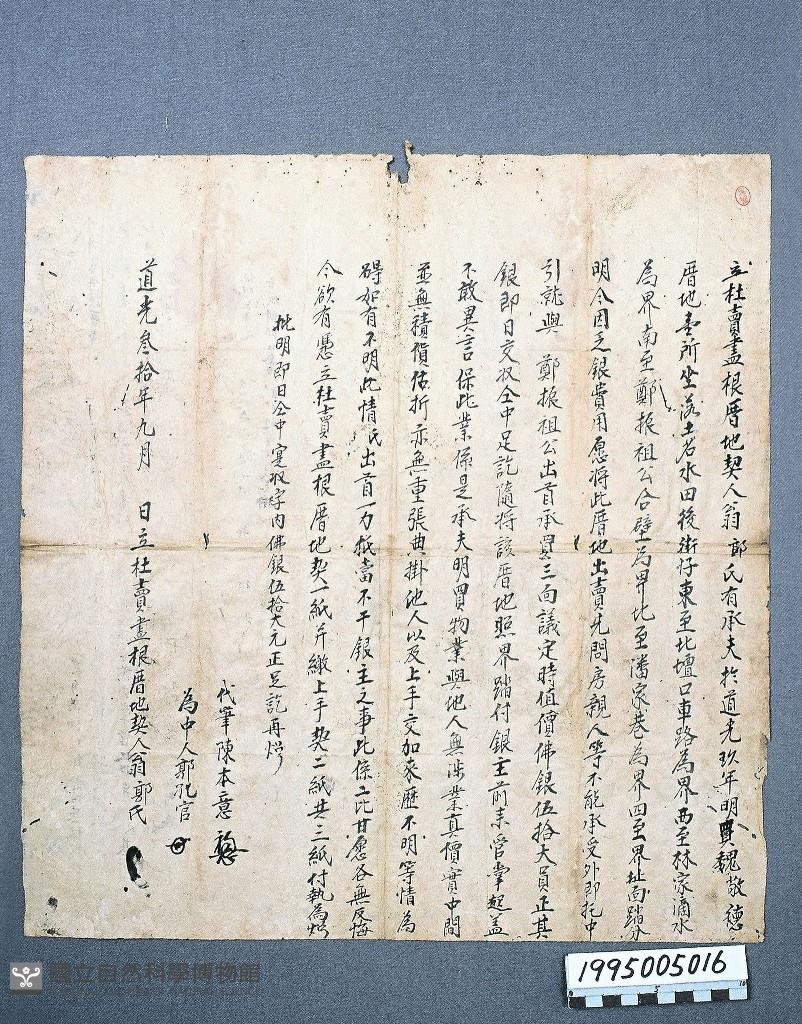 立杜賣盡根厝地契人翁郭氏有承夫於道光玖年明買魏敬德
厝地壹所坐落土名水田後街仔東至北壇口車路為界西至林家滴水
為界南至鄭振祖公合壁為界北至潘家巷為界四至界址面踏分
明今因乏銀費用愿將此厝地出賣先問房親人等不能承受外即托中
引就與 鄭振祖公出首承買三面議定時值價佛銀伍拾大員正其
銀即日交收仝中足訖隨將該厝地照界踏付銀主前來管掌起盖
不敢異言保此業係是承夫明買物業與他人無涉業真價實中間
並無積貨估折亦無重張典掛他人以及上手交加來歷不明等情為
碍如有不明此情氏出首一力抵當不干銀主之事此係二比甘愿各無反悔
今欲有憑立杜賣盡根厝地契一紙并繳上手契二紙共三紙付執為炤
批明即日仝中寔收字內佛銀伍拾大元正足訖再炤
代筆陳本意
為中人郭孔官
道光叁拾年九月 日立杜賣盡根厝地契人翁郭氏
國立自然科學博物館
1995005016